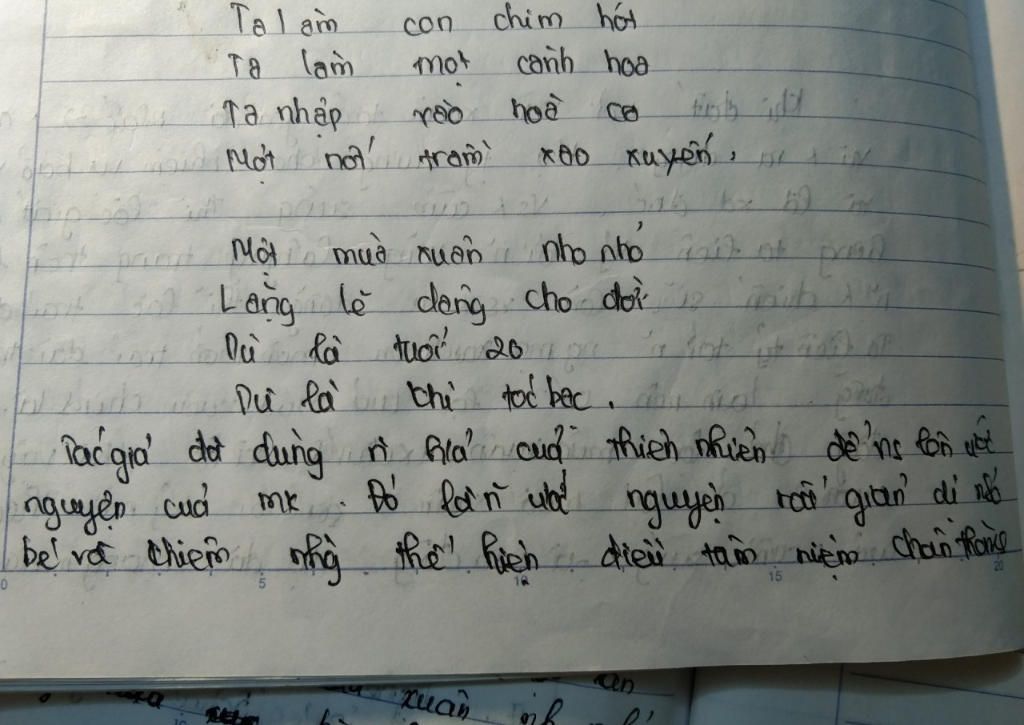 Ta làm con chim hót
Ta làm một cành hoa
Ta nhập vào hoà ca
Một nốt trầm xao xuyến.
Một mùa xuân nho nhỏ
Lặng lẽ dâng cho đời
Dù là tuổi 20
Dù là khi tóc bạc.
Tác giả đã dùng n h/ả của thiên nhiên để ns lên ước
nguyện của mk. Đó là n ước nguyện rất giản dị nhỏ
bé và khiêm nhg thể hiện điều tâm niệm chân thành
0 5 12 15 20
xuân